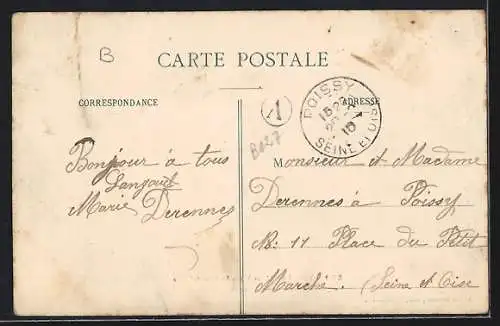 B
CARTE POSTALE
CORRESPONDANCE
ADRESSE
POISSY
10
SEINE ET OISE
A
B027
Bonjour à tous
Marie Derennes
M onsieur et Madame
Derennes à Poissy
No: 11 Place du Petit
Marché. (Seine et Oise